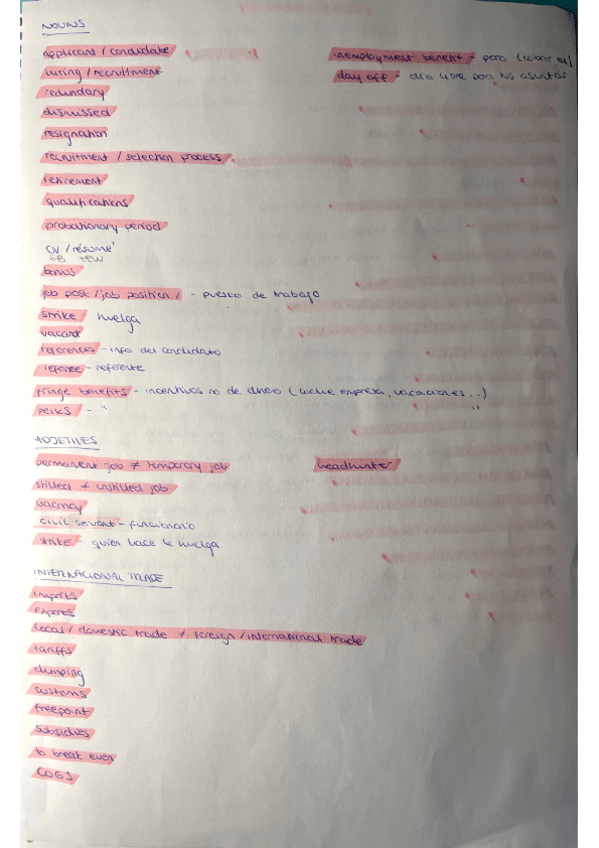 NOUNS
applicant / candidate
hiring / recruitment
redundary
dismissed
resignation
recruitment / selection process
retirement
qualifications
probationary period
CV / résumé
GB
bonus
job post / job position / - puesto de trabajo
strike huelga
vacant
references - info del candidato
referee - referente
fringe benefits - incentivos no de dinero (coche empresa, vacaciones..)
perks - " "
unemployment benefit - paro (cobro el)
day off - dia libre para ns asuntos
ADJETIVES
permanent job ≠ temporary job
skilled ≠ unskilled job
vacancy
civil servant - funcionario
strike - quien hace la huelga
headhunter
INTERNACIONAL TRADE
imports
exports
local / domestic trade ≠ foreign / international trade
tariffs
dumping
customs
freepoint
subsidies
to break even
COGS